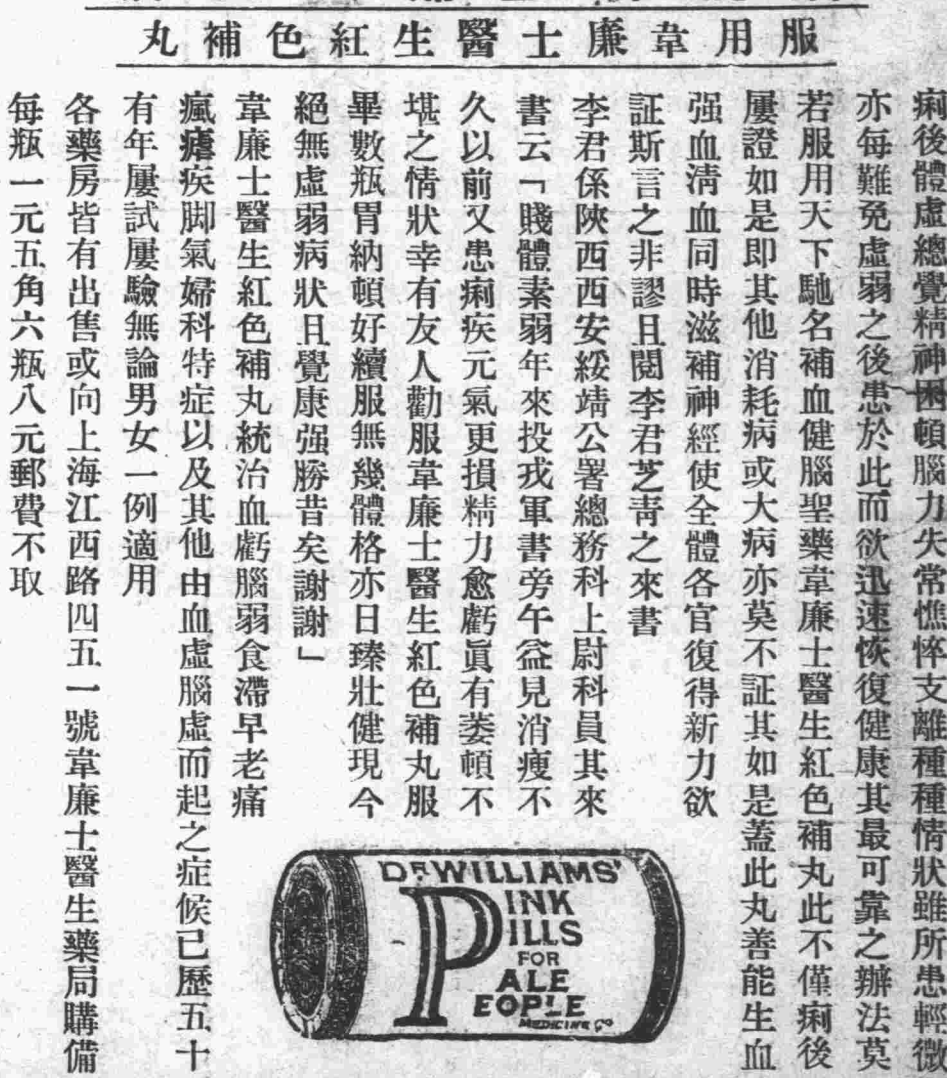 服用韋廉士醫生紅色補丸
痢後體虛總覺精神困頓腦力失常憔悴支離種種情狀雖所患輕微
亦每難免虛弱之後患於此而欲迅速恢復健康其最可靠之辦法莫
若服用天下馳名補血健腦聖藥韋廉士醫生紅色補丸此不僅痢後
屢證如是即其他消耗病或大病亦莫不証其如是蓋此丸善能生血
强血清血同時滋補神經使全體各官復得新力欲
証斯言之非謬且閱李君芝青之來書
李君係陝西西安綏靖公署總務科上尉科員其來
書云「賤體素弱年來投戎軍書旁午益見消瘦不
久以前又患痢疾元氣更損精力愈虧眞有萎頓不
堪之情狀幸有友人勸服韋廉士醫生紅色補丸服
畢數瓶胃納頓好續服無幾體格亦日臻壯健現今
絕無虛弱病狀且覺康强勝昔矣謝謝」
韋廉士醫生紅色補丸統治血虧腦弱食滯早老痛
瘋瘧疾脚氣婦科特症以及其他由血虛腦虛而起之症候已歷五十
有年屢試屢驗無論男女一例適用
各藥房皆有出售或向上海江西路四五一號韋廉士醫生藥局購備
每瓶一元五角六瓶八元郵費不取
DR WILLIAMS'
PINK
PILLS
FOR
PALE
PEOPLE
MEDICINE Co